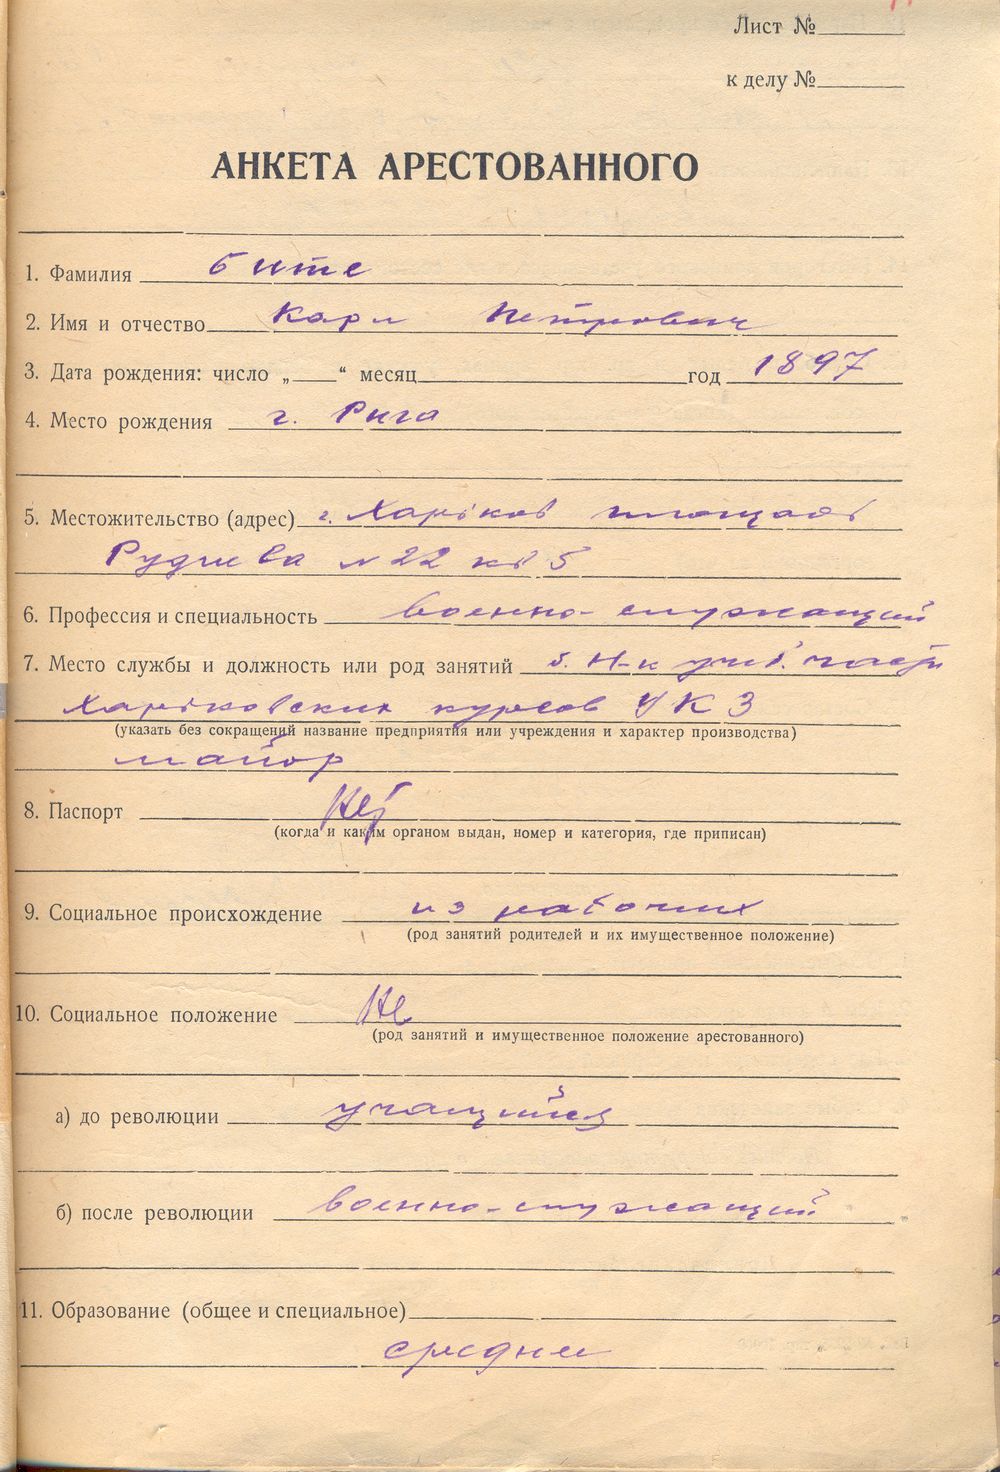 Лист №
к делу №
АНКЕТА АРЕСТОВАННОГО
1. Фамилия Бите
2. Имя и отчество Карл Петрович
3. Дата рождения: число „ “ месяц год 1897
4. Место рождения г. Рига
5. Местожительство (адрес) г. Харьков площадь
Руднева № 22 кв 5
6. Профессия и специальность военно-служащий
7. Место службы и должность или род занятий б. Н-к учеб. части
Харьковских курсов УКЗ
(указать без сокращений название предприятия или учреждения и характер производства)
майор
8. Паспорт Нет
(когда и каким органом выдан, номер и категория, где приписан)
9. Социальное происхождение из рабочих
(род занятий родителей и их имущественное положение)
10. Социальное положение
(род занятий и имущественное положение арестованного)
а) до революции учащийся
б) после революции военно-служащий
11. Образование (общее и специальное)
среднее